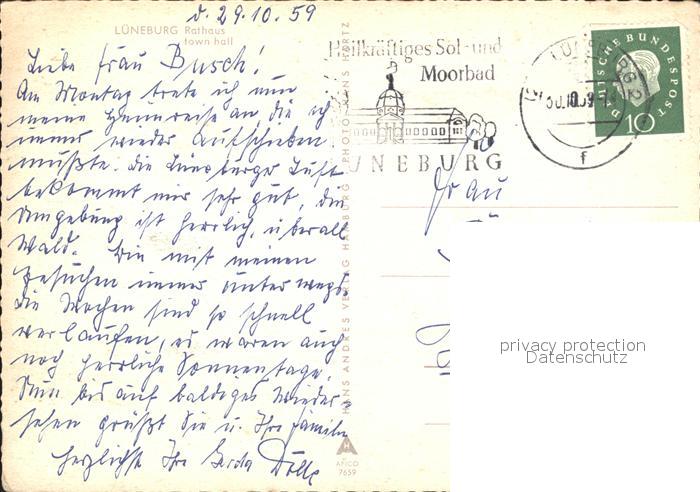 d. 29.10.59
LÜNEBURG Rathaus
town hall
Liebe Frau Busch!
Am Montag trete ich nun
meine Heimreise an, die ich
immer wieder aufschieben
mußte. Die Lüneburger Luft
bekommt mir sehr gut, die
Umgebung ist herrlich, überall
Wald. Bin mit meinen
Besuchen immer unterwegs,
die Wochen sind so schnell
verlaufen, es waren auch
noch herrliche Sonnentage.
Nun bis auf baldiges Wieder-
sehen grüßt Sie u. Ihre Familie
herzlichst Ihre Gerda
HANS ANDRES VERLAG HAMBURG PHOTO HANS HARTZ
AFICO
7659
Heilkräftiges Sol- und
Moorbad
LÜNEBURG
30.10.59
f
DEUTSCHE BUNDESPOST
10
Frau
privacy protection
Datenschutz